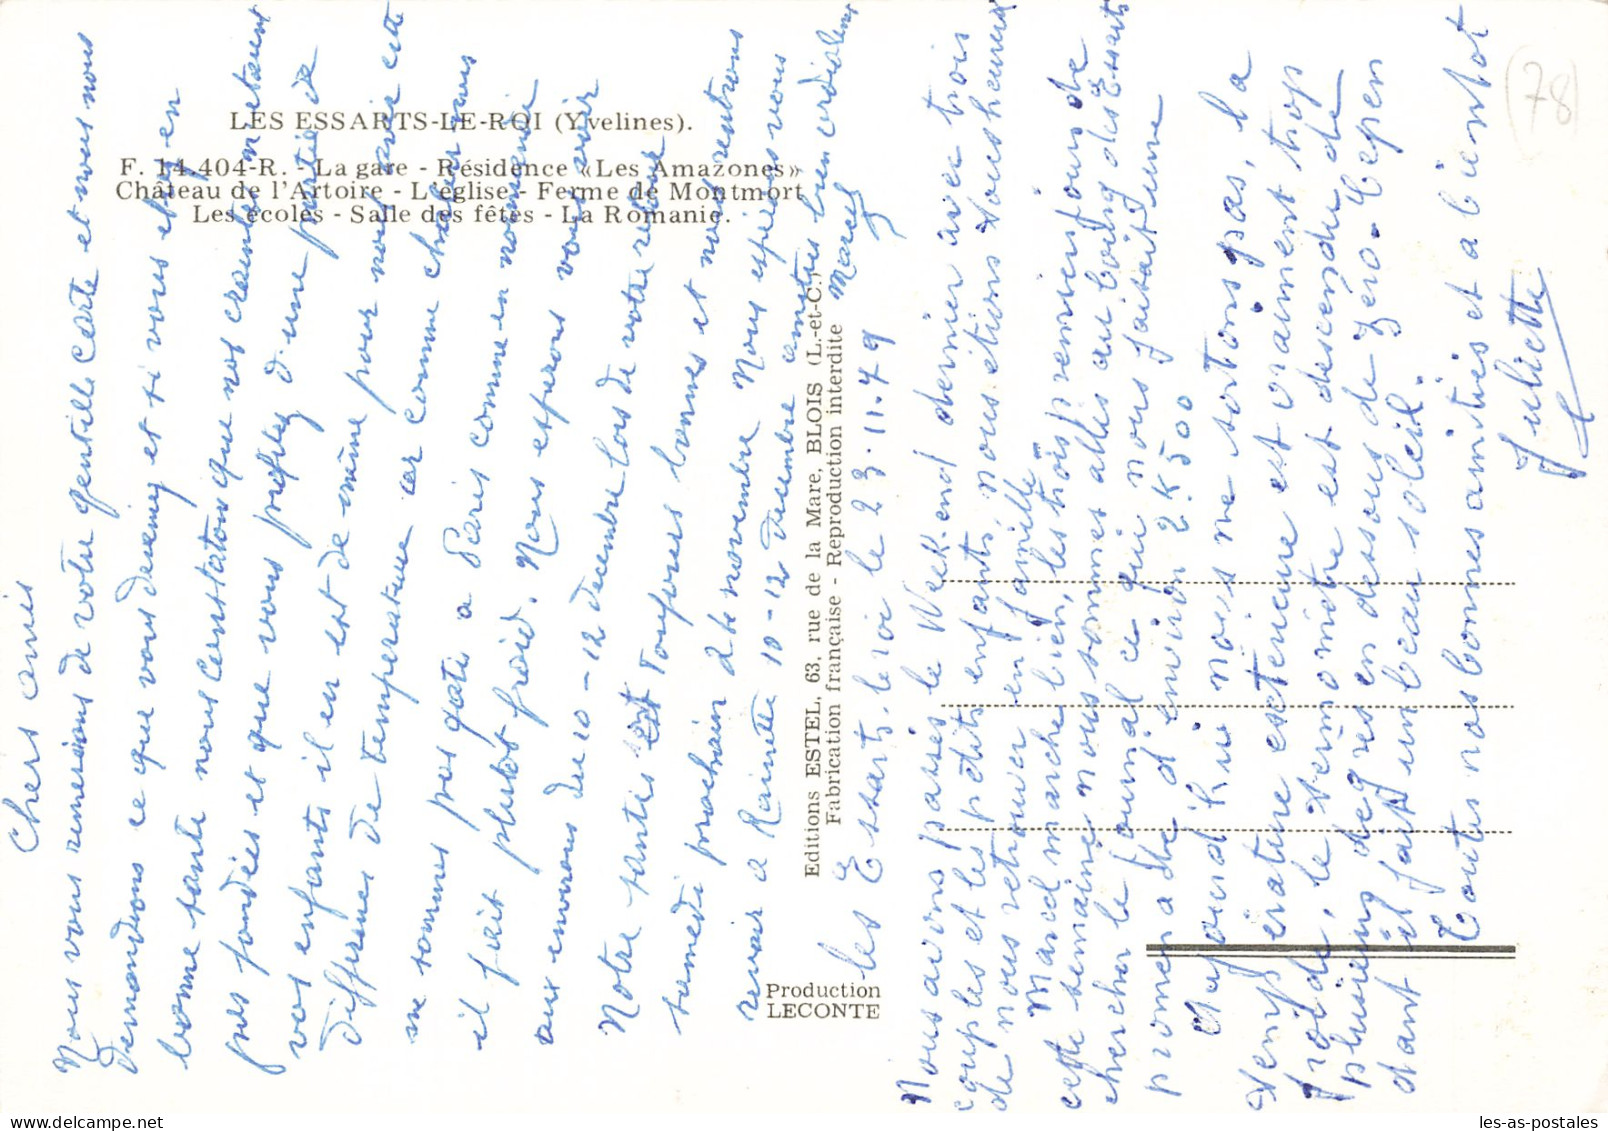 LES ESSARTS-LE-ROI (Yvelines).
F. 14.404-R. - La gare - Résidence «Les Amazones»
Château de l'Artoire - L'église - Ferme de Montmort
Les écoles - Salle des fêtes - La Romanie.
Editions ESTEL, 63, rue de la Mare, BLOIS (L.-et-C.)
Fabrication française - Reproduction interdite
Production
LECONTE
(78)
Chers amis
Nous vous remercions de votre gentille carte et nous nous
demandions ce que vous deveniez et si vous etiez en
bonne sante nous constatons que nos craintes etaient
pas fondées et que vous profitez d'une partie de
vos enfants il en est de même pour nous avec cette
difference de temperature car comme chaleur nous
ne sommes pas gatés a Paris comme en normandie
il fait plutot froid. Nous esperons vous voir
aux environs du 10-12 decembre lors de votre retour
Notre santé est toujours bonnes et nous rentrons
samedi prochain 24 novembre Nous esperons vous
revoir a 10-12 decembre amitiés bien cordiales
Marcel
les Essarts-le-roi le 23.11.79
Nous avons passés le Week.end dernier avec trois
couples et les petits enfants, nous étions tous heureux
de nous retrouver en famille.
Marcel marche bien, les trois premiers jours de
cette semaine nous sommes allés au bourg des Essarts
chercher le journal ce qui nous faisait une
promenade d'environ 2K500
Aujourd'hui nous ne sortons pas, la
température exterieure est vraiment trop
froide, le termomètre est descendu de
plusieurs degrés en dessous de zéro. Cepen
dant il fait un beau soleil.
Toutes nos bonnes amitiés et a bientot
Juliette
les-as-postales